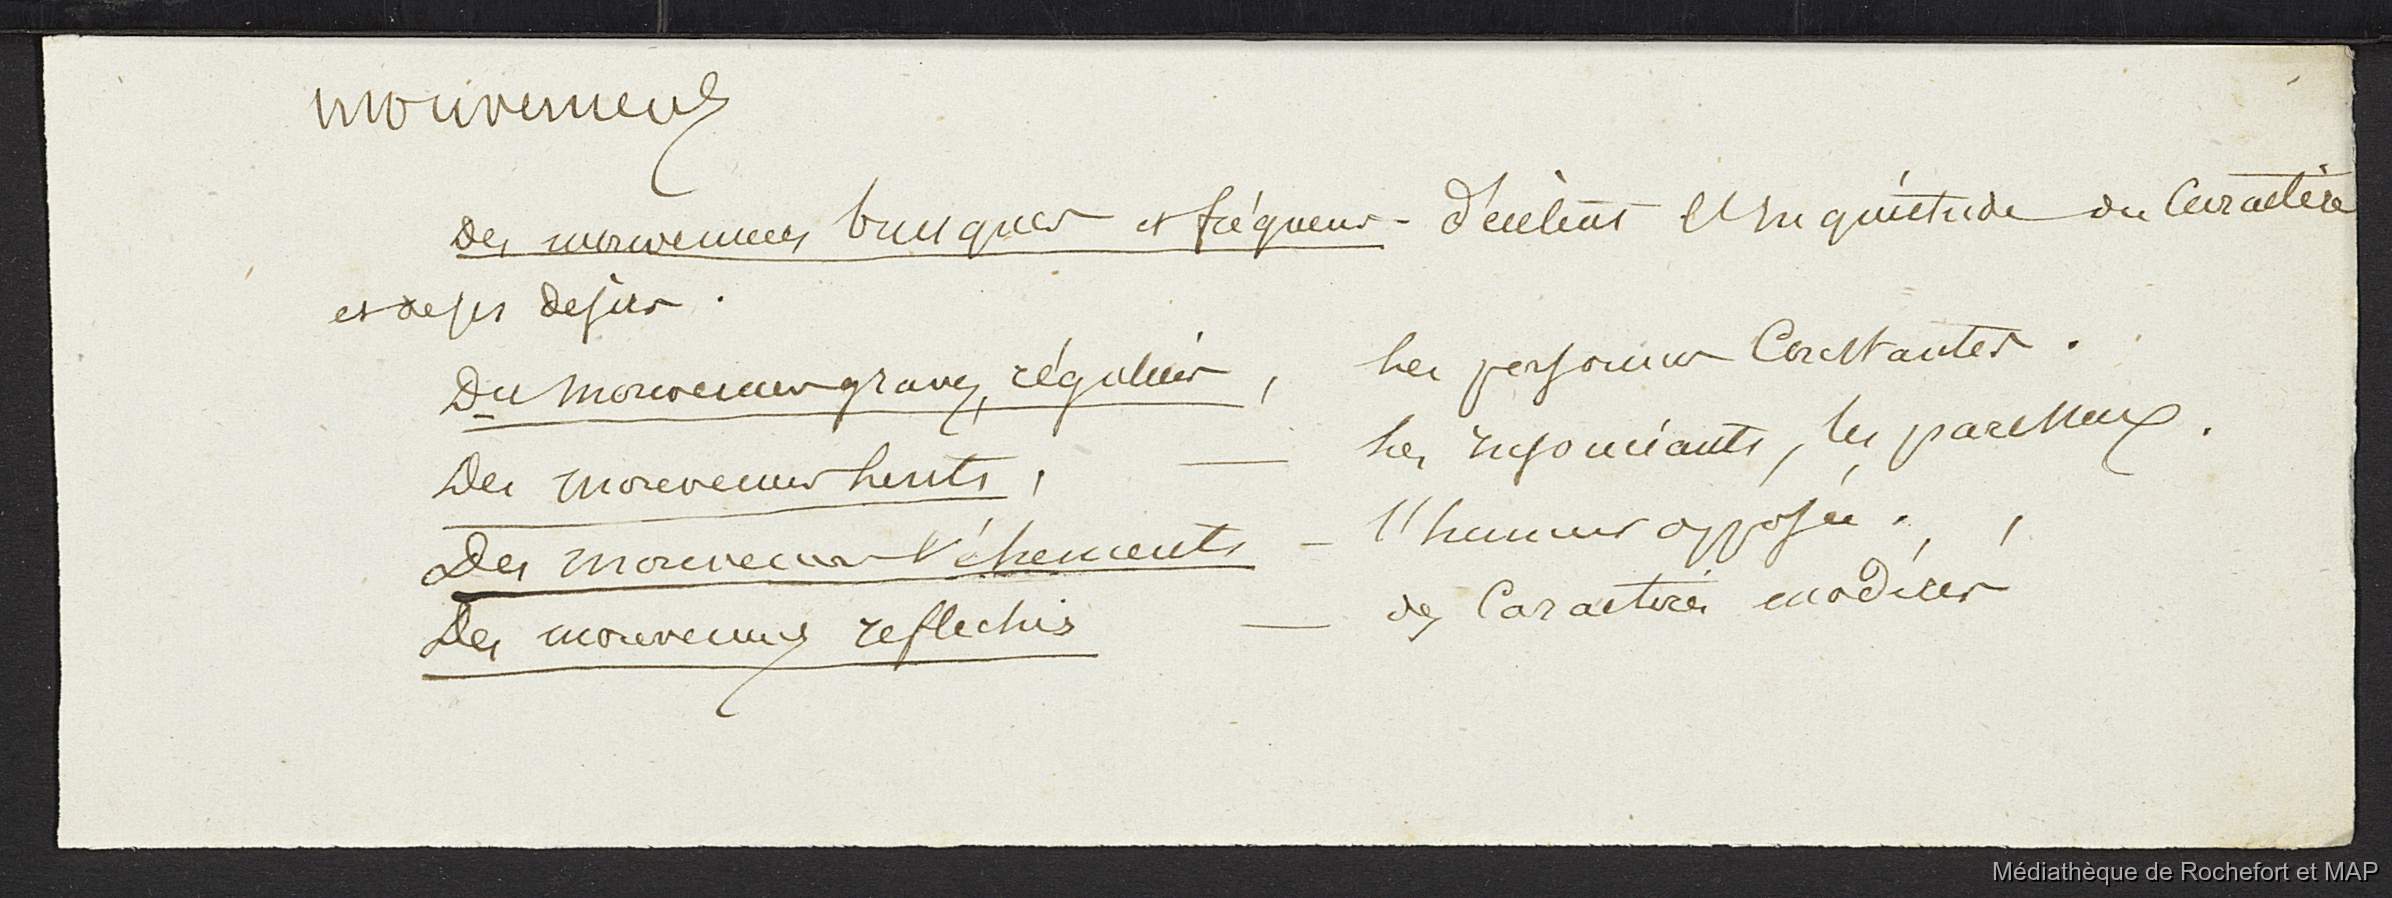 mouvemens
Des mouvemens brusques et fréquens - décelent l'Inquiétude du Caractère
et de ses desirs.
Du mouvemens graves, régulier, les personnes Constantes.
Des mouvemens lents, — les insouciants, les paresseux.
Des mouvemens véhements - l'humeur opposée.
Des mouvemens reflechis — des Caractères modérés
Médiathèque de Rochefort et MAP